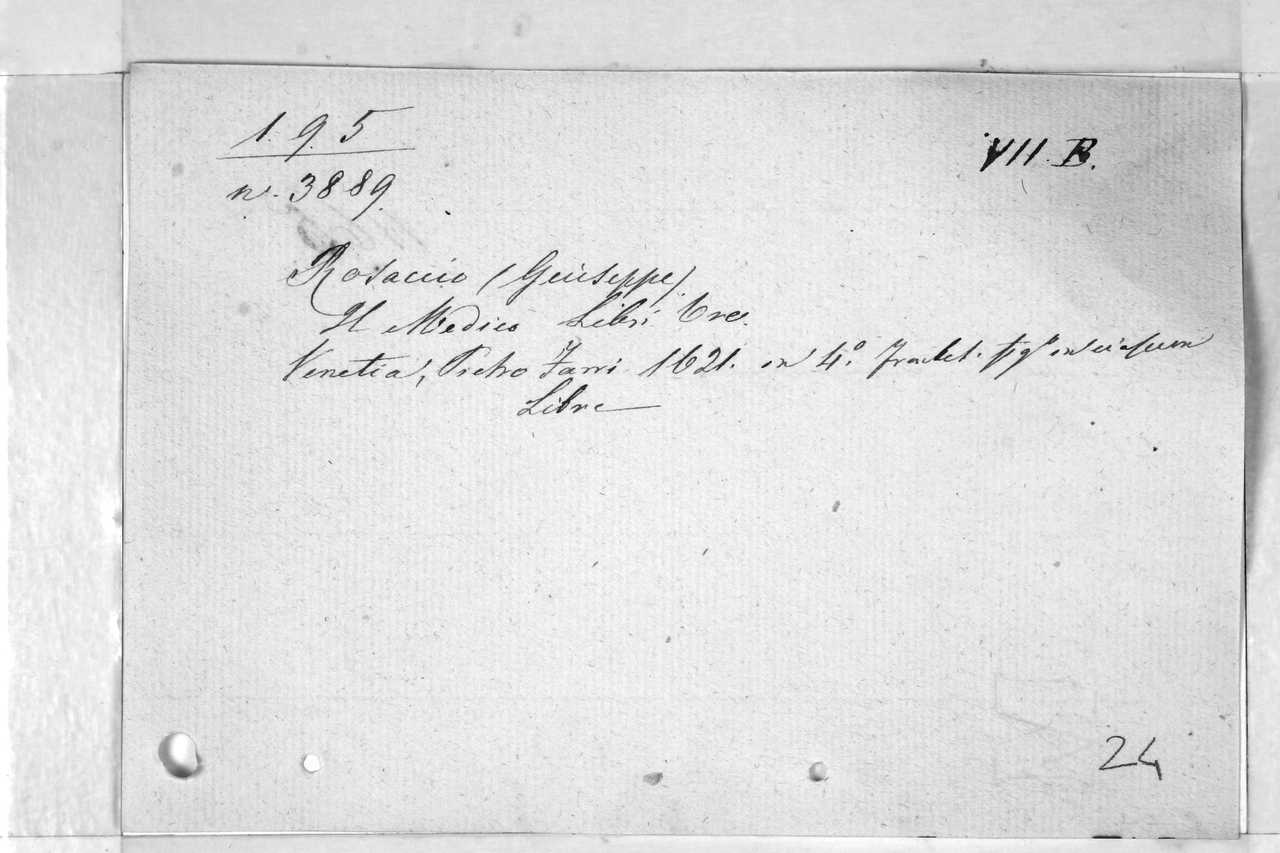 1. 9. 5
VII. B.
n. 3889
Rosaccio (Giuseppe)
Il Medico Libri tre.
Venetia, Pietro Farri 1621. in 4.º frontesp. fig.º in ciascun
Libro
24